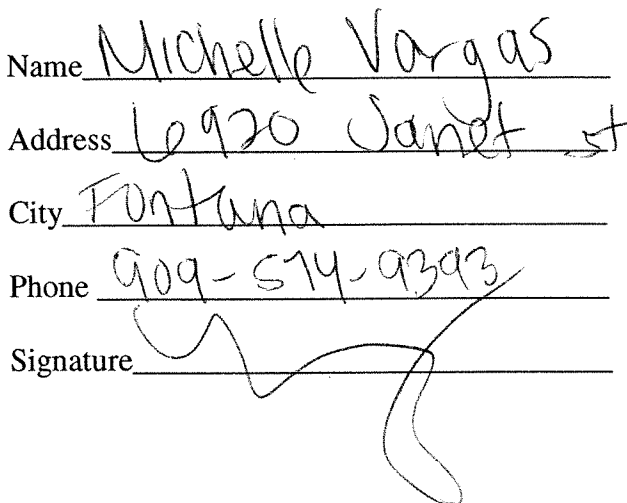 Name Michelle Vargas
Address 6920 Janet st
City Fontana
Phone 909-574-9393
Signature